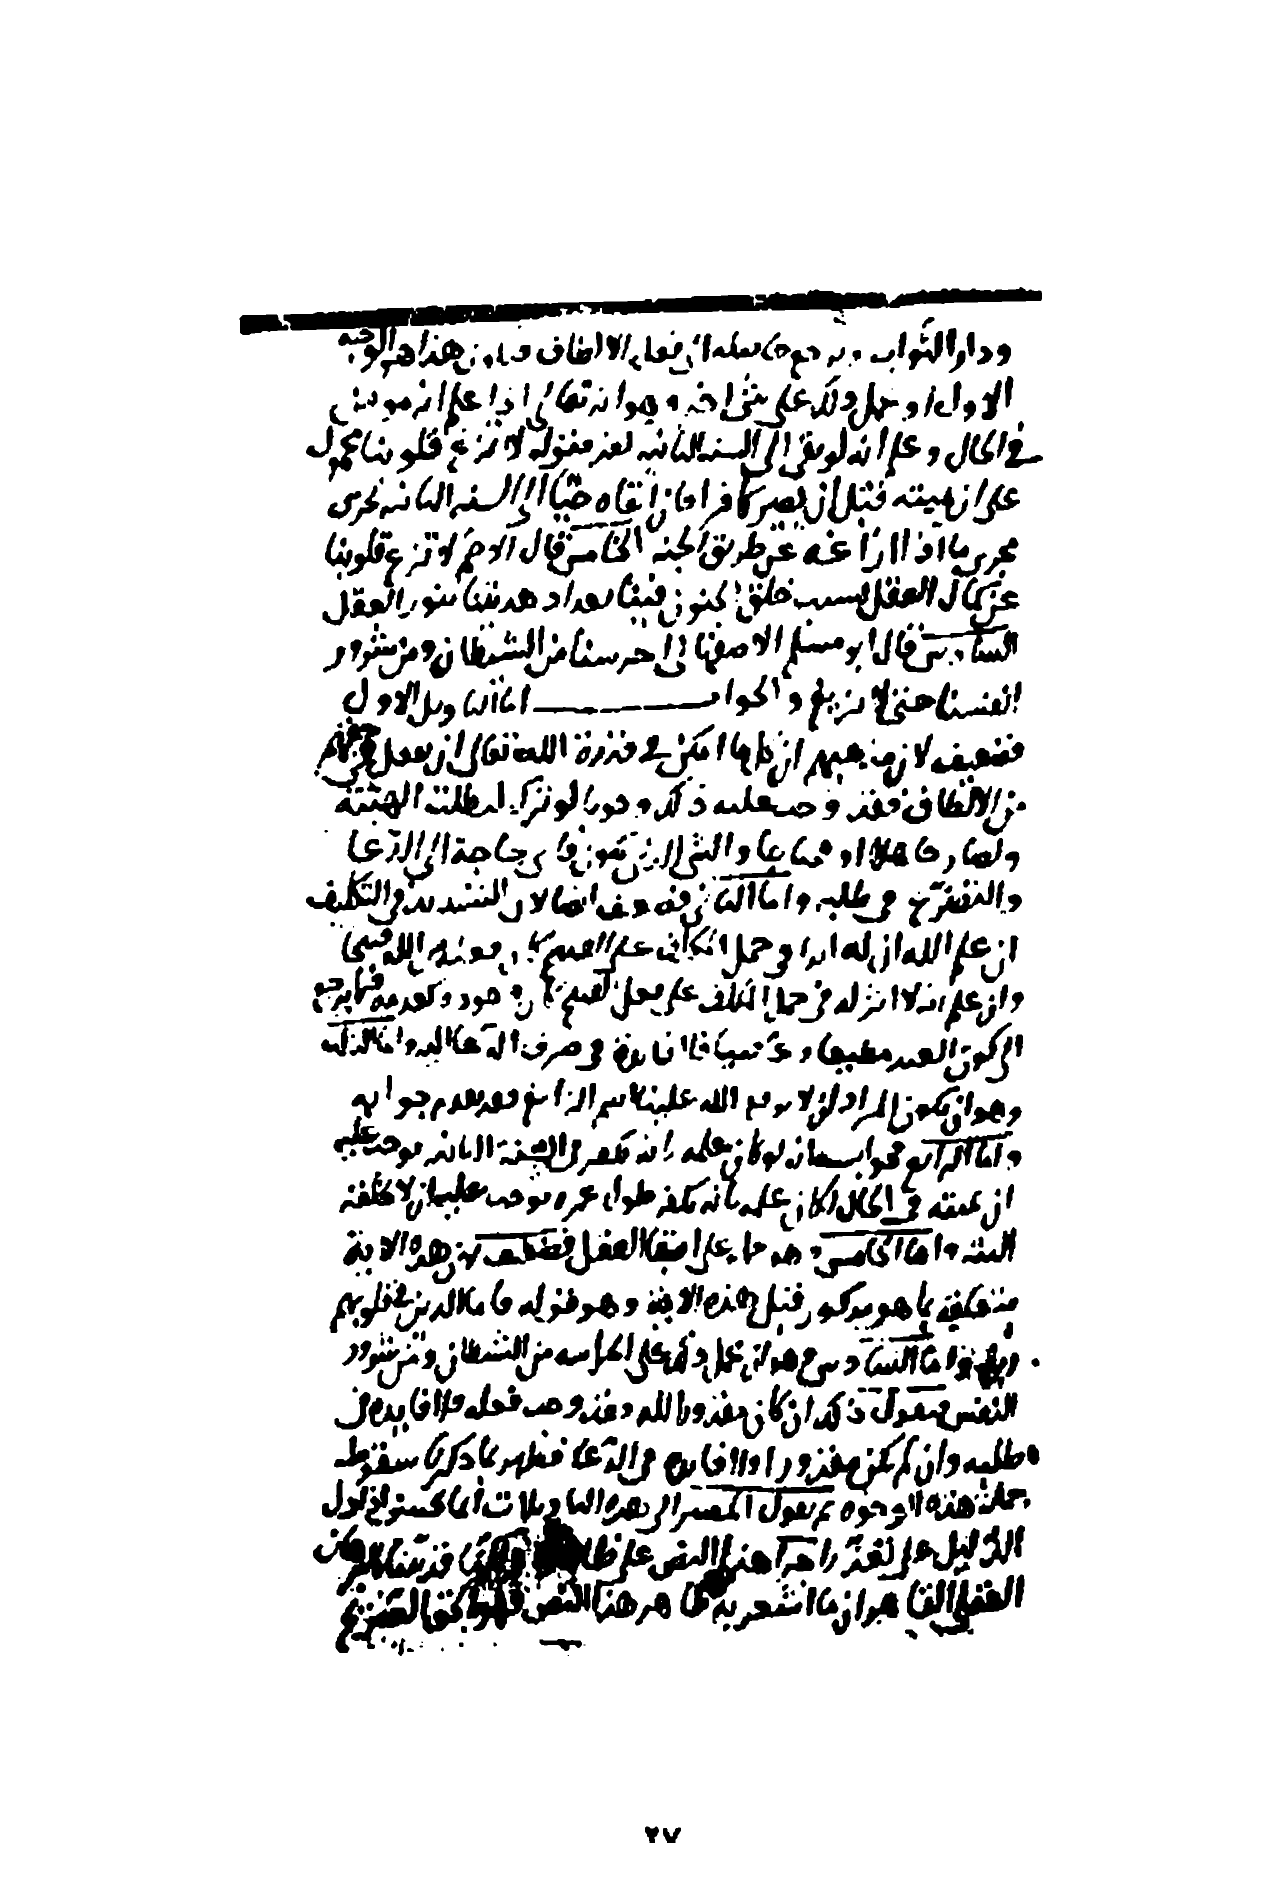 ودار الثواب و هذا هو الوجه
الاول او يحمل ذلك على شئ اخر وهو انه تعالى اذا علم انه مومن
في الحال وعلم انه لو بقى الى السنة الثانية لقوله لا تزغ قلوبنا محمول
على ان يميته قبل ان يصير كافرا فان ابقاه حيا الى السنة الثانية يجرى
مجرى ما اذا ازاغه عن طريق الجنة الخامس قال الاصم لا تزغ قلوبنا
عن كمال العقل بسبب خلق الجنون فينا بعد اذ هديتنا بنور العقل
السادس قال ابو مسلم الاصفهانى احرسنا من الشيطان ومن شرور
انفسنا حتى لا نزيغ والجواب اما التاويل الاول
فضعيف لان مذهبهم ان كلما امكن في قدرة الله تعالى ان يفعل في حقهم
من الالطاف فقد وجب عليه ذلك وجوبا لو تركه لبطلت الهيته
ولصار جاهلا او محتاجا والشئ الذي يكون فاى حاجة الى الدعا
والتضرع في طلبه واما الثانى فضعيف ايضا لان التشديد في التكليف
ان علم الله ان له اثرا في حمل المكلف على القبيح كان من الله قبيحا
وان علم انه لا اثر له في حمل المكلف على فعل القبيح كان وجوده كعدمه فيما يرجع
الى كون العبد مطيعا وعاصيا فلا فايدة في صرف الدعا اليه واما الثالث
وهو ان يكون المراد ان لا الله علينا اسم الزائغ فقد تقدم جوابه
واما الرابع فجوابه انه لو كان علمه بانه يكفر في السنة الثانية يوجب عليه
ان يميته في الحال لكان علمه بانه يكفر طول عمره يوجب عليه ان لا يخلقه
البتة واما الخامس وهو حمله على ابقا العقل فضعيف لان هذه الاية
متعلقة بما هو مذكور قبل هذه الاية وهو قوله فاما الذين في قلوبهم
زيغ واما السادس وهو ان يحمل ذلك على الحراسة من الشيطان ومن شرور
النفس فنقول ذلك ان كان مقدورا لله فقد وجب فعله فلا فايدة في
طلبه وان لم يكن مقدورا فلا فايدة في الدعا فظهر بما ذكرنا سقوط
جملة هذه الوجوه ثم نقول المصير الى هذه التاويلات انما يحسن لو دل
الدليل على تعذر اجرا هذا النص على ظاهره قد بينا ان
العقلى هو ان ما اشعر به ظاهر هذا النص فهو الحق الصريح
٢٧